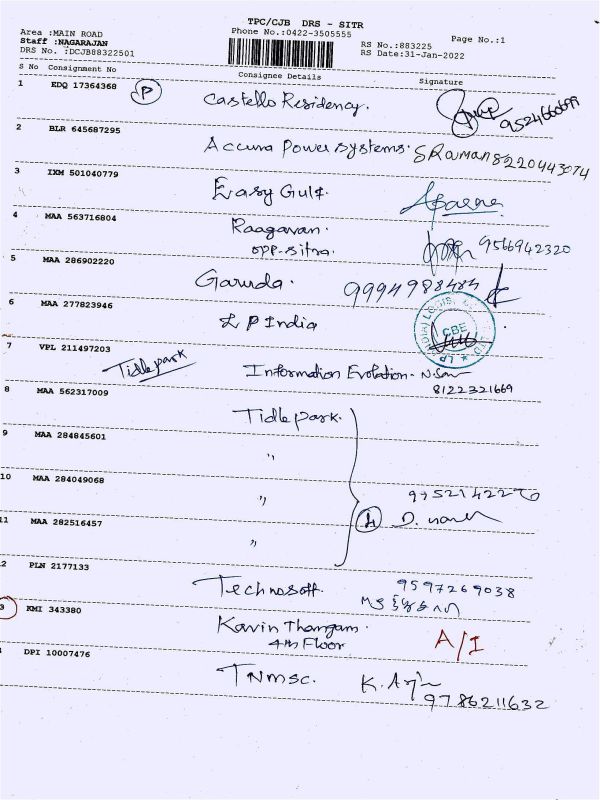 TPC/CJB DRS - SITR
Area :MAIN ROAD
Phone No.:0422-3505555
Page No.:1
Staff :NAGARAJAN
RS No.:883225
DRS No. :DCJB88322501
RS Date:31-Jan-2022
S No Consignment No Consignee Details Signature
1 EDQ 17364368 P Castello Residency. 9524666699
2 BLR 645687295 Accuna Power Systems. SRaman 8220443074
3 IXM 501040779 Easy Gulf. Aparna
4 MAA 563716804 Raagavan. 9566942320
opp-sitra.
5 MAA 286902220 Garuda. 9994988484
6 MAA 277823946 LP India CBE
7 VPL 211497203 Tidle park Information Evolation.
8122321669
8 MAA 562317009 Tidle park.
9 MAA 284845601 〃
10 MAA 284049068 〃 9752142270
11 MAA 282516457 〃 4
2 PLN 2177133 Technosoft. 9597269038
3 KMI 343380 Kavin Thangam.
4th Floor A/I
DPI 10007476 TNMSC. K. Arj
9786211632